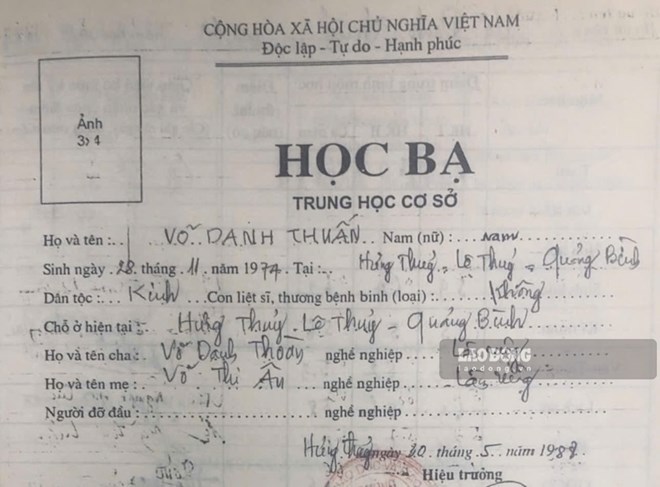 CỘNG HÒA XÃ HỘI CHỦ NGHĨA VIỆT NAM
Độc lập - Tự do - Hạnh phúc
Ảnh
3x4
HỌC BẠ
TRUNG HỌC CƠ SỞ
Họ và tên: VÕ DANH THUẤN Nam (nữ): nam
Sinh ngày 28 tháng 11 năm 1974 Tại: Hưng Thuỷ - Lệ Thuỷ - Quảng Bình
Dân tộc: Kinh Con liệt sĩ, thương bệnh binh (loại): Không
Chỗ ở hiện tại: Hưng Thuỷ - Lệ Thuỷ - Quảng Bình
Họ và tên cha: Võ Danh nghề nghiệp
LAO ĐỘNG
laodong.vn
Họ và tên mẹ: Võ Thị Ân nghề nghiệp
Người đỡ đầu: nghề nghiệp:
Hưng Thuỷ, ngày 20 tháng 5 năm
Hiệu trưởng